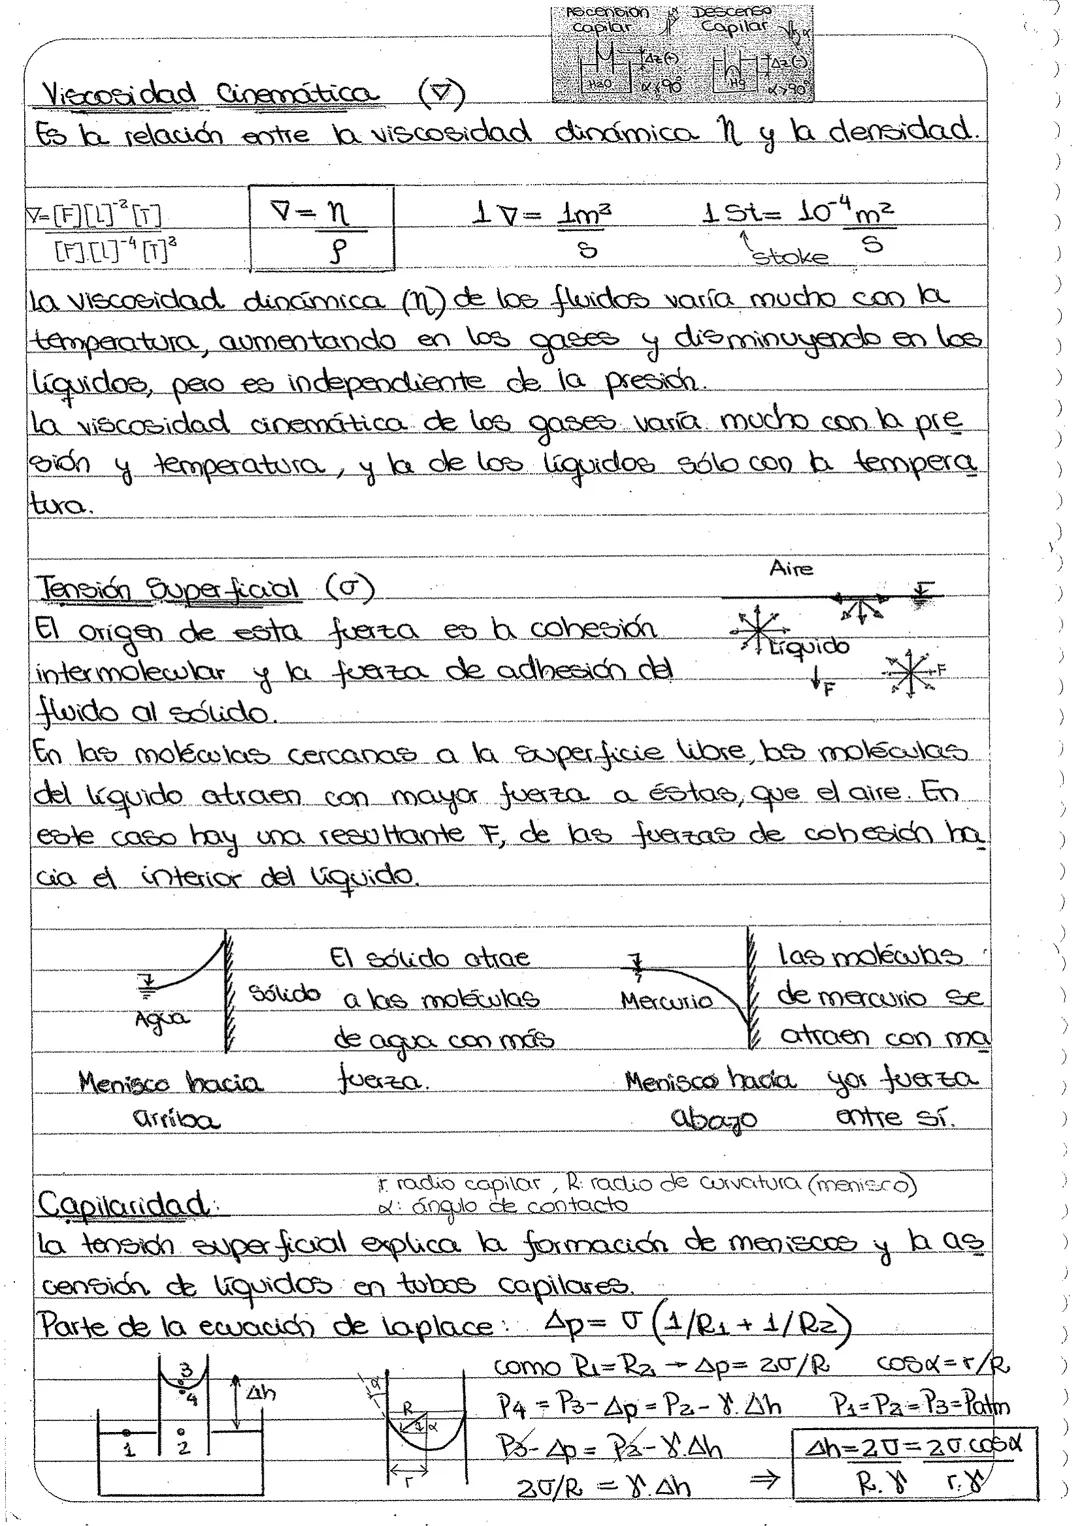 Ascensión capilar
Descenso Capilar
Δz(-)
Δz(-)
H2O α<90°
Hg α>90°
Viscosidad Cinemática (∇)
Es la relación entre la viscosidad dinámica η y la densidad.
∇=[F][L]⁻²[T] / [F].[L]⁻⁴[T]²
∇=η/ρ
1∇= 1m²/s
1 St= 10⁻⁴m²/s
stoke
La viscosidad dinámica (η) de los fluidos varía mucho con la
temperatura, aumentando en los gases y disminuyendo en los
líquidos, pero es independiente de la presión.
La viscosidad cinemática de los gases varía mucho con la pre
sión y temperatura, y la de los líquidos sólo con la tempera
tura.
Tensión Superficial (σ)
Aire
El origen de esta fuerza es la cohesión
Líquido
intermolecular y la fuerza de adhesión del
F
F
fluido al sólido.
En las moléculas cercanas a la superficie libre, las moléculas
del líquido atraen con mayor fuerza a éstas, que el aire. En
este caso hay una resultante F, de las fuerzas de cohesión ha
cia el interior del líquido.
Agua
Sólido
Menisco hacia
arriba
El sólido atrae
a las moléculas
de agua con más
fuerza.
Mercurio
Menisco hacia
abajo
Las moléculas
de mercurio se
atraen con ma
yor fuerza
entre sí.
r: radio capilar, R: radio de curvatura (menisco)
α: ángulo de contacto
Capilaridad:
La tensión superficial explica la formación de meniscos y la as
censión de líquidos en tubos capilares.
Parte de la ecuación de Laplace: Δp= σ(1/R1 + 1/R2)
como R1=R2 → Δp= 2σ/R cosα=r/R
P4 = P3-Δp = P2-γ.Δh P1=P2=P3=Patm
P3-Δp = P2-γ.Δh
2σ/R = γ.Δh ⇒ Δh=2σ/R.γ=2σ.cosα/r.γ
3
4
Δh
1
2
α
R
α
r